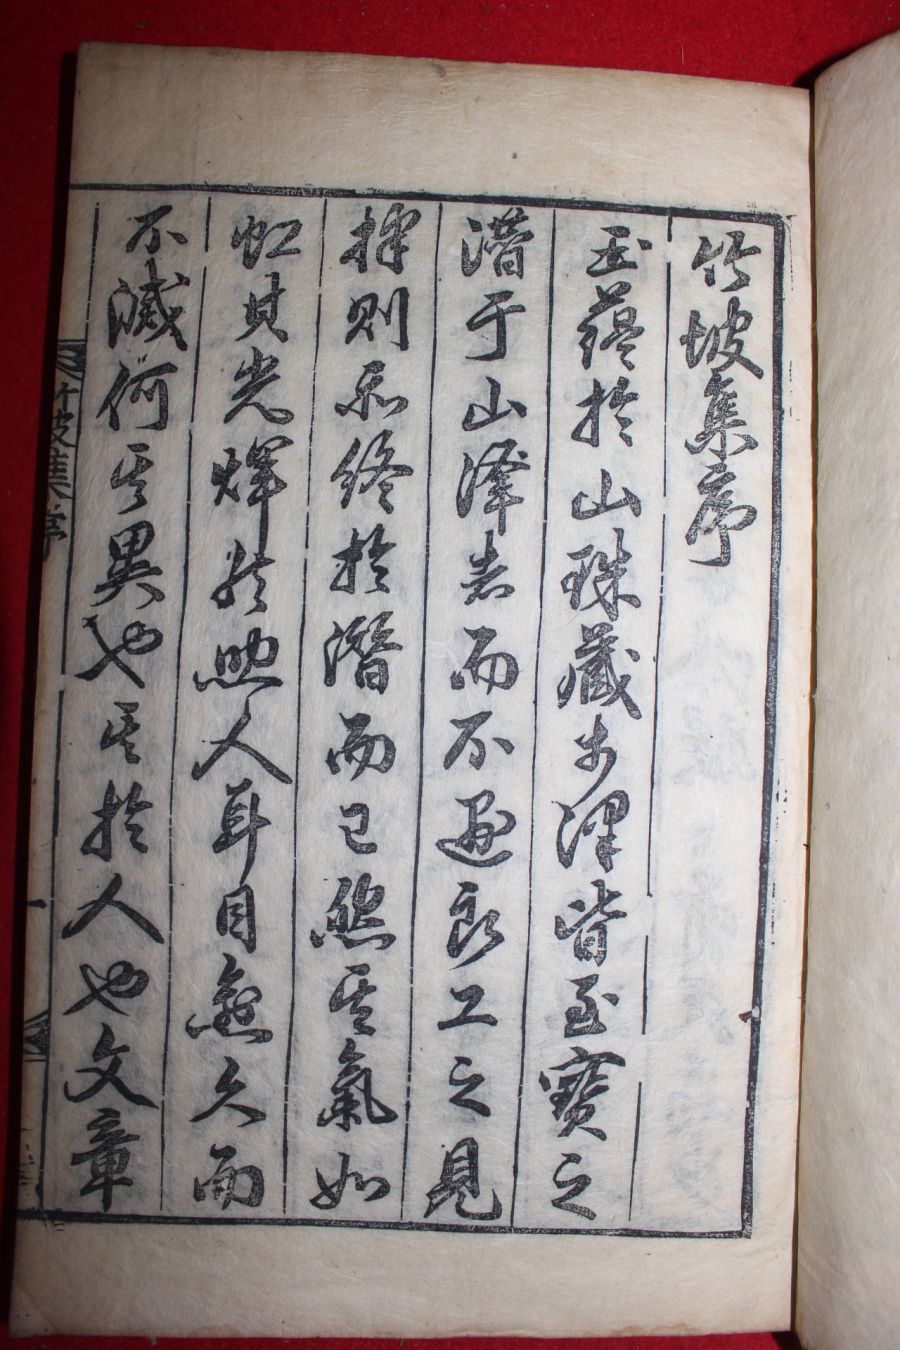 竹坡集序
玉蘊於山珠藏於澤皆至寶之
潛于山澤者而不遇良工之見
擇則亦終於潛而已然其氣如
虹其光輝能照人耳目愈久而
不滅何其異也其於人也文章
竹坡集序 一